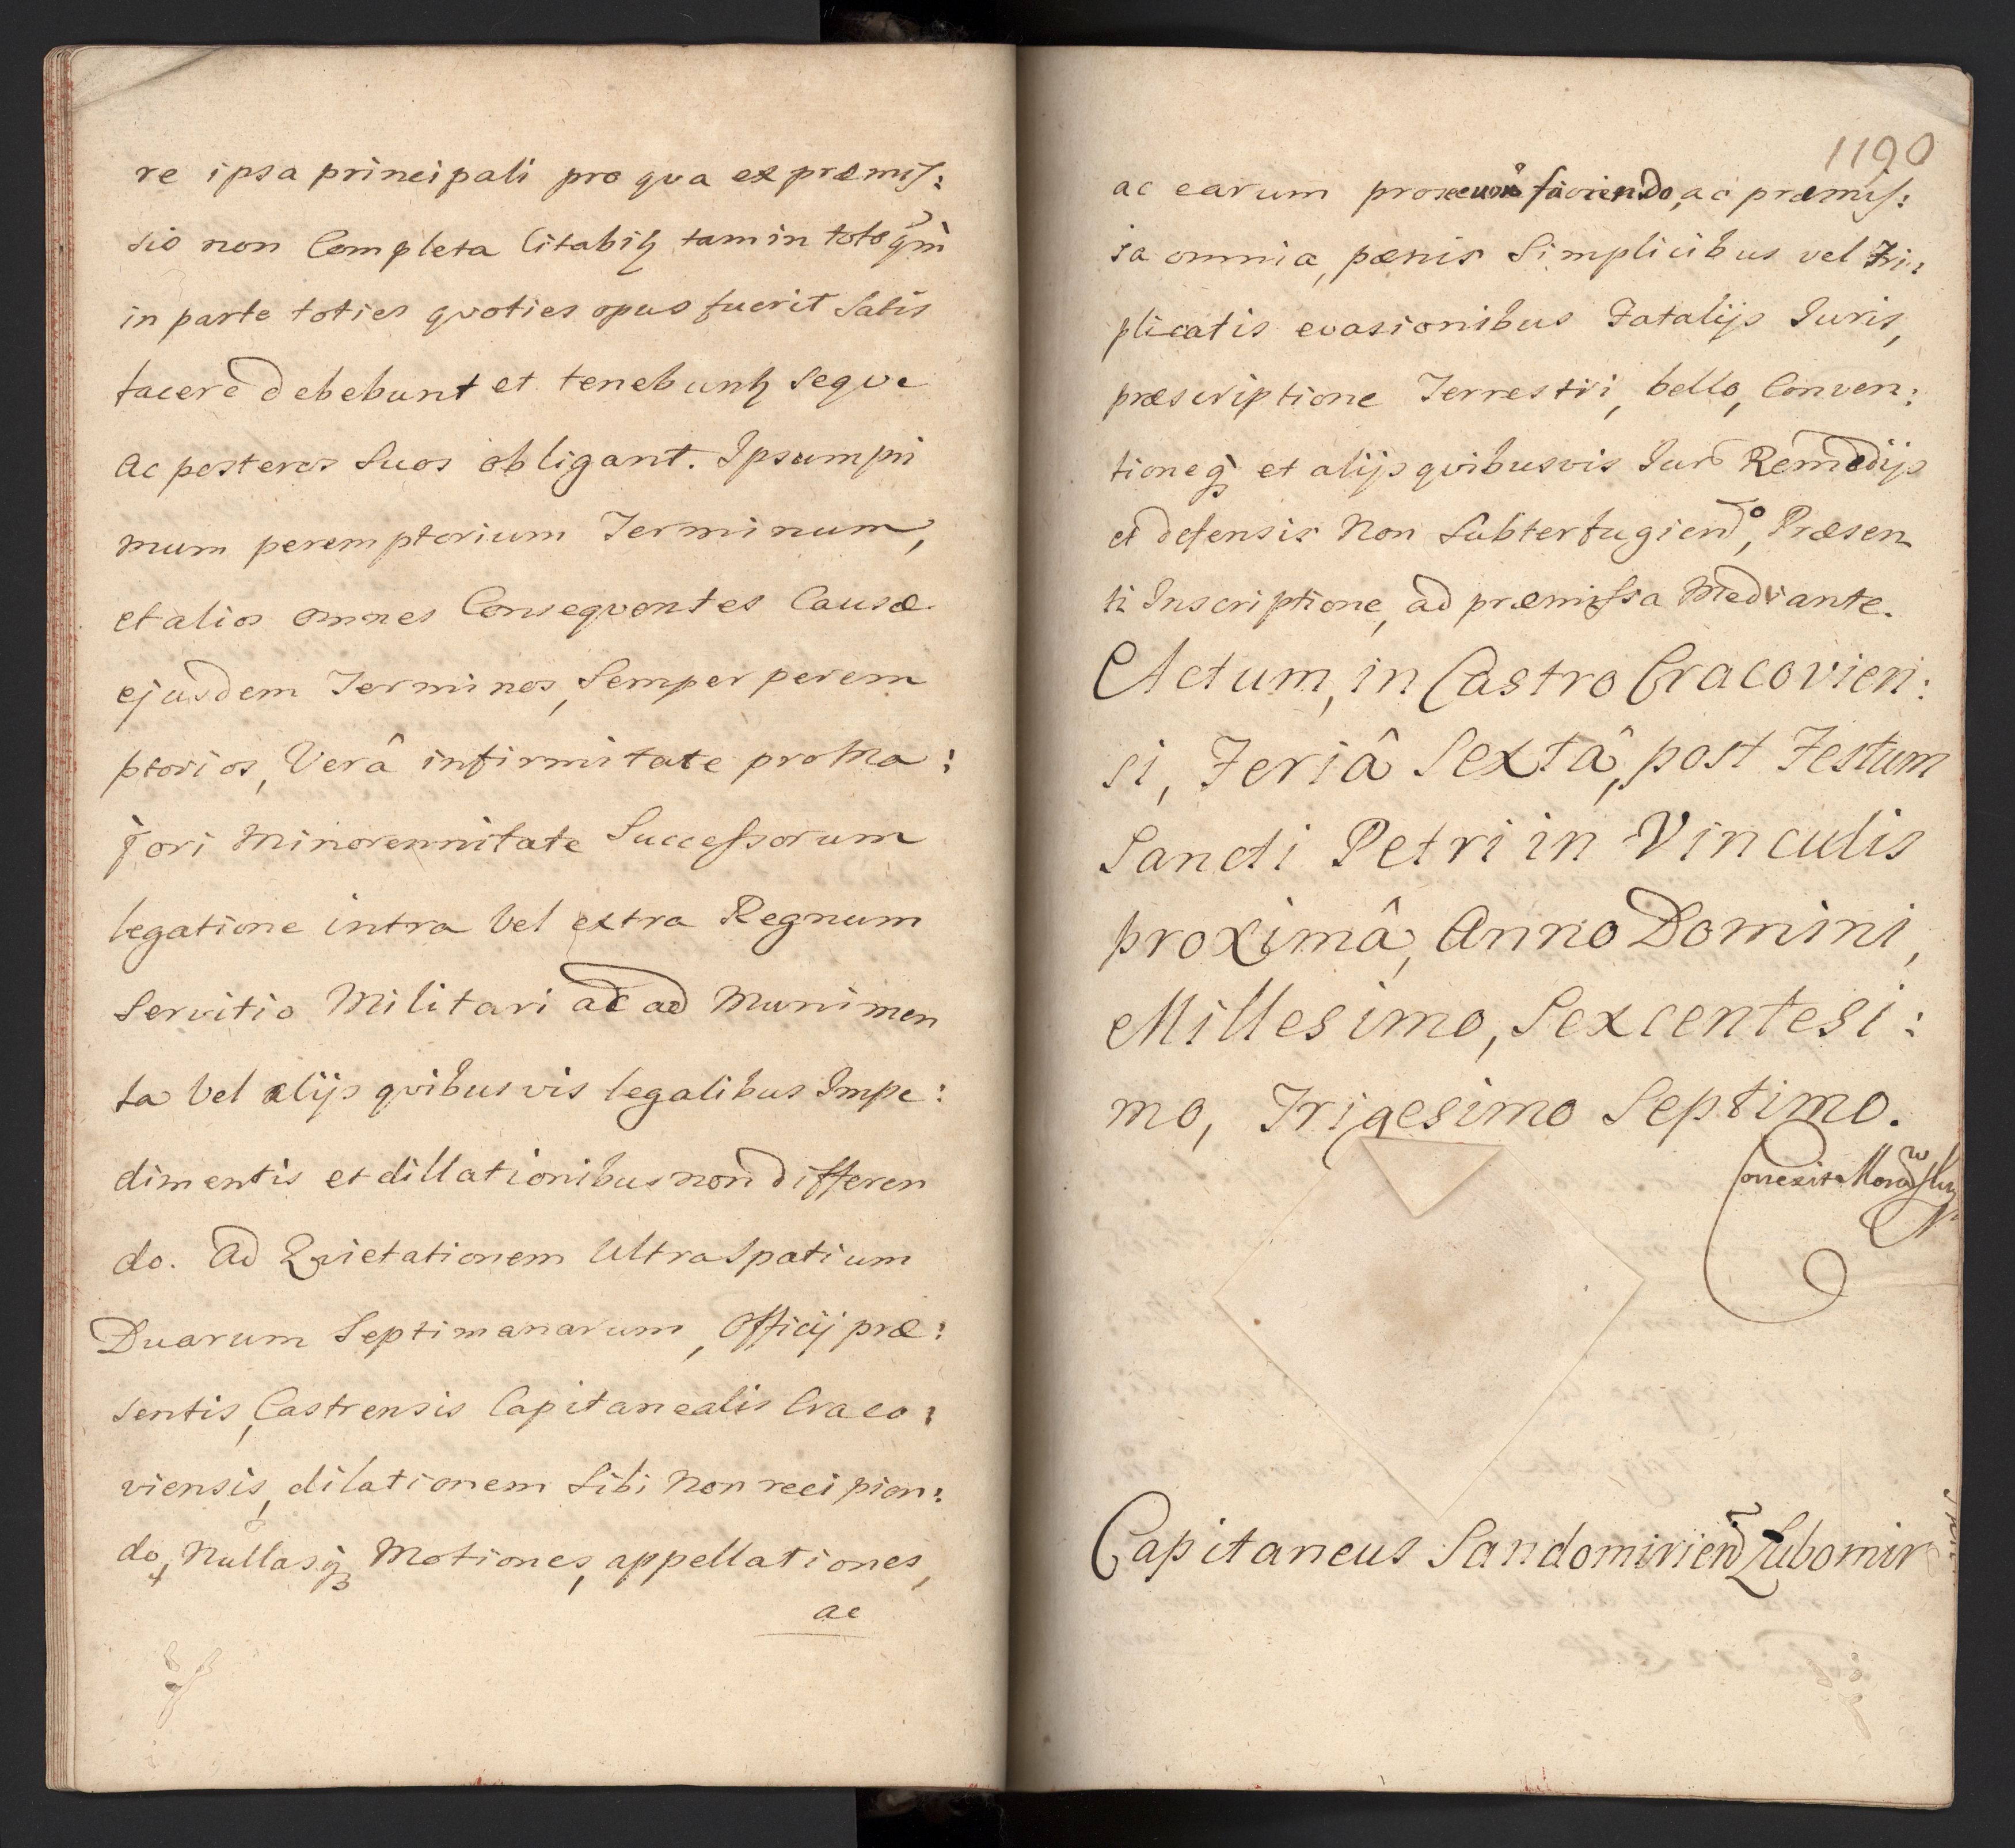 re ipsa principali pro qua ex præmis:
sio non Completa Citabitꝫ tam in toto qm̃
in parte toties quoties opus fuerit Satis
facere debebunt et tenebuntꝫ seque
Ac posteros Suos obligant. Ipsum pri
mum peremptorium Terminum,
et alios omnes Consequentes Causæ
ejusdem Terminos, Semper perem
ptorios, Verâ infirmitate pro Ma:
jori Minorennitate Successorum
legatione intra Vel extra Regnum
Servitio Militari ac ad Munimen
ta Vel alijs quibusvis legalibus Impe:
dimentis et dillationibus non differen
do. Ad Quietationem Ultra Spatium
Duarum Septimanarum, Officij præ:
sentis, Castrensis Capitanealis Craco:
viensis, dilationem Sibi Non recipien:
do, Nullasqꝫ Motiones, appellationes,
ac
1190
ac earum faciendo, ac præmis:
sa omnia, pænis Simplicibus vel Tri:
plicatis evasionibus Fatalijs Iuris,
præscriptione Terrestri, bello, Conven:
tioneqꝫ et alijs quibusvis Iuris Remedijs
et defensis Non Subterfugiendo, Præsen
ti Inscriptione, ad præmissa Mediante.
Actum, in Castro Cracovien:
si, Feriâ Sextâ, post Festum
Sancti Petri in Vinculis
proximâ, Anno Domini,
Millesimo, Sexcentesi:
mo, Trigesimo Septimo.
Correxit
Capitaneus Sandomirien̄ Lubomir